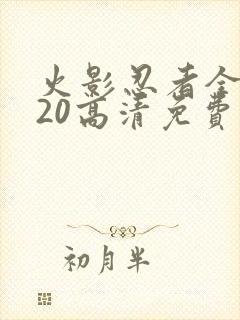 火影忍者全
20高清免費
初月半